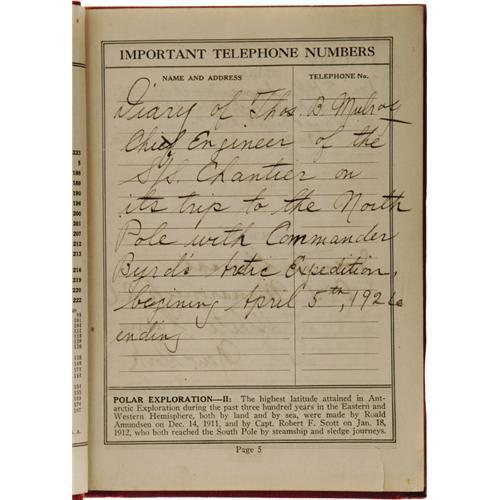 IMPORTANT TELEPHONE NUMBERS
NAME AND ADDRESS TELEPHONE No.
Diary of Thos. B. Mulroy
Chief Engineer of the
S/S. Chantier on
its trip to the North
Pole with Commander
Byrd's Arctic Expedition,
begining April 5th, 1926
ending
POLAR EXPLORATION—II: The highest latitude attained in Ant-
arctic Exploration during the past three hundred years in the Eastern and
Western Hemisphere, both by land and by sea, were made by Roald
Amundsen on Dec. 14, 1911, and by Capt. Robert F. Scott on Jan. 18,
1912, who both reached the South Pole by steamship and sledge journeys.
Page 5